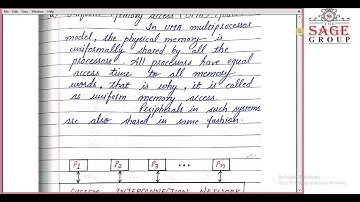 Uniform Memory Access (UMA) Model
In UMA multiprocessor
model, the physical memory is
uniformally shared by all the
processors. All processors have equal
access time to all memory
words, that is why, it is called
as uniform memory access.
Peripherals in such systems
are also shared in same fashion.
P1 P2 P3 ... Pn
SYSTEM INTERCONNECTION NETWORK
THE
SAGE
GROUP
Activate Windows